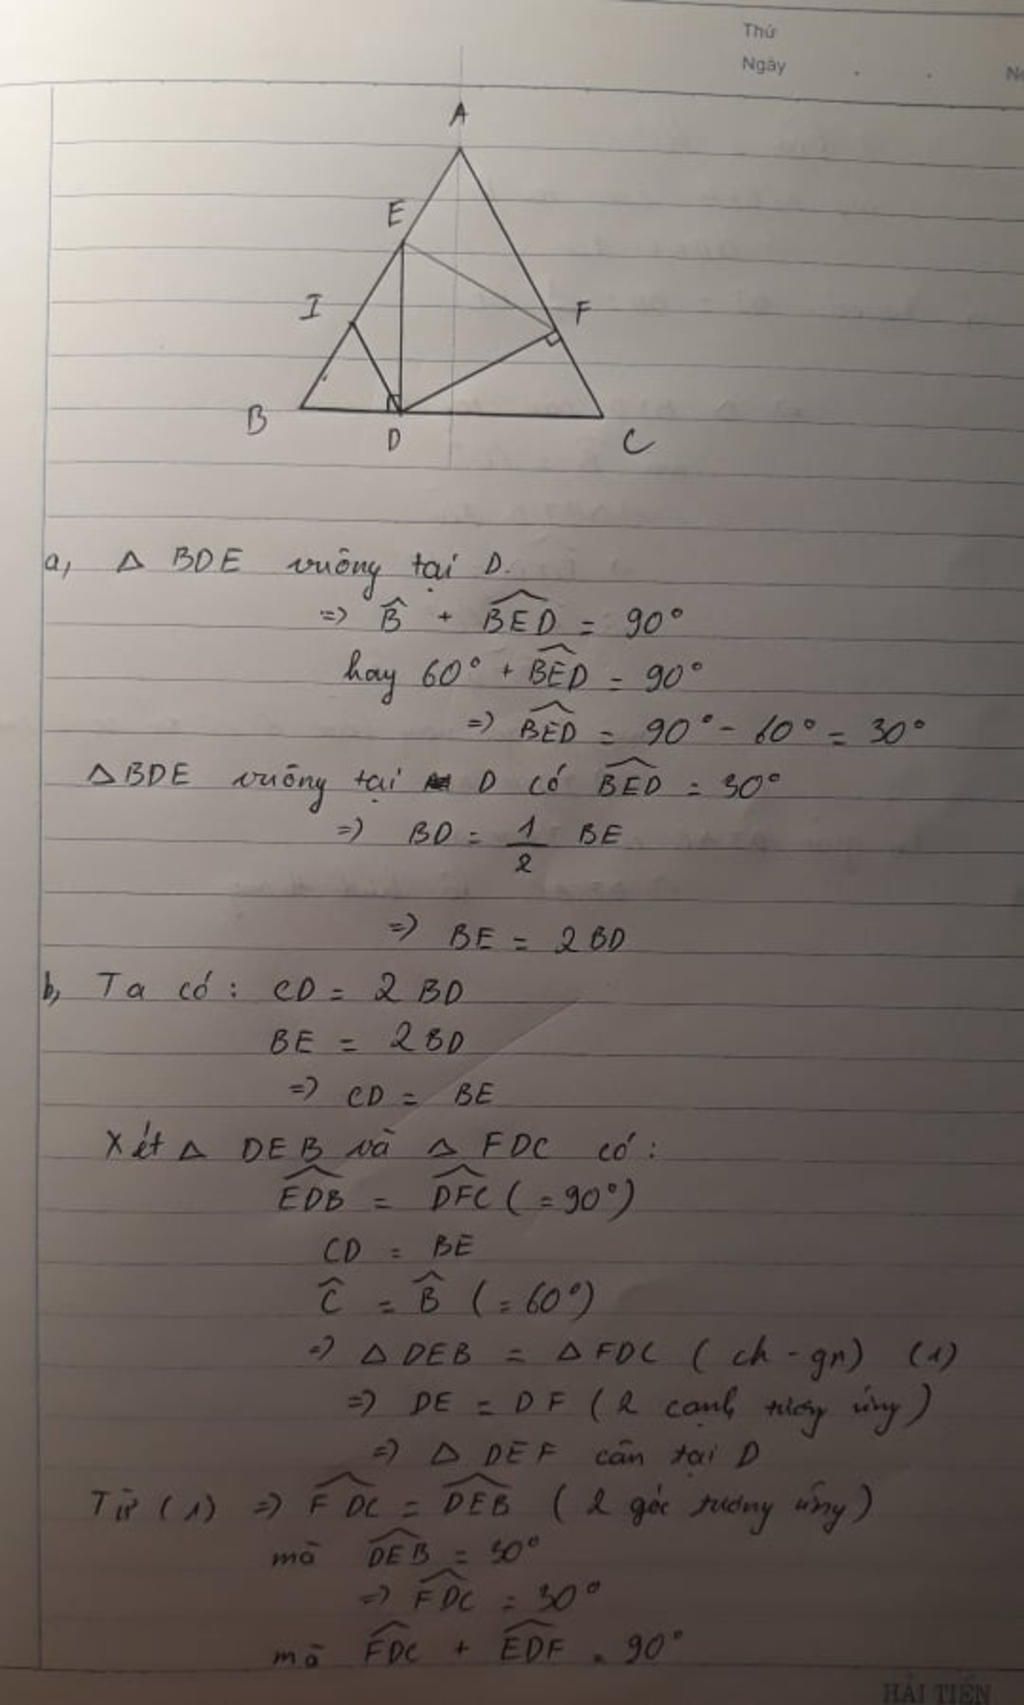 Thứ
Ngày
A
E
I
F
B
D
C
a, △ BDE vuông tại D.
=> B̂ + BED̂ = 90°
hay 60° + BED̂ = 90°
=> BED̂ = 90° - 60° = 30°
△BDE vuông tại D có BED̂ = 30°
=> BD = 1/2 BE
=> BE = 2BD
b, Ta có: CD = 2BD
BE = 2BD
=> CD = BE
Xét △ DEB và △ FDC có:
EDB̂ = DFĈ (= 90°)
CD = BE
Ĉ = B̂ (= 60°)
=> △ DEB = △ FDC (ch - gn) (1)
=> DE = DF (2 cạnh tương ứng)
=> △ DEF cân tại D
Từ (1) => FDĈ = DEB̂ (2 góc tương ứng)
mà DEB̂ = 30°
=> FDĈ = 30°
mà FDĈ + EDF̂ = 90°
HẢI TIẾN